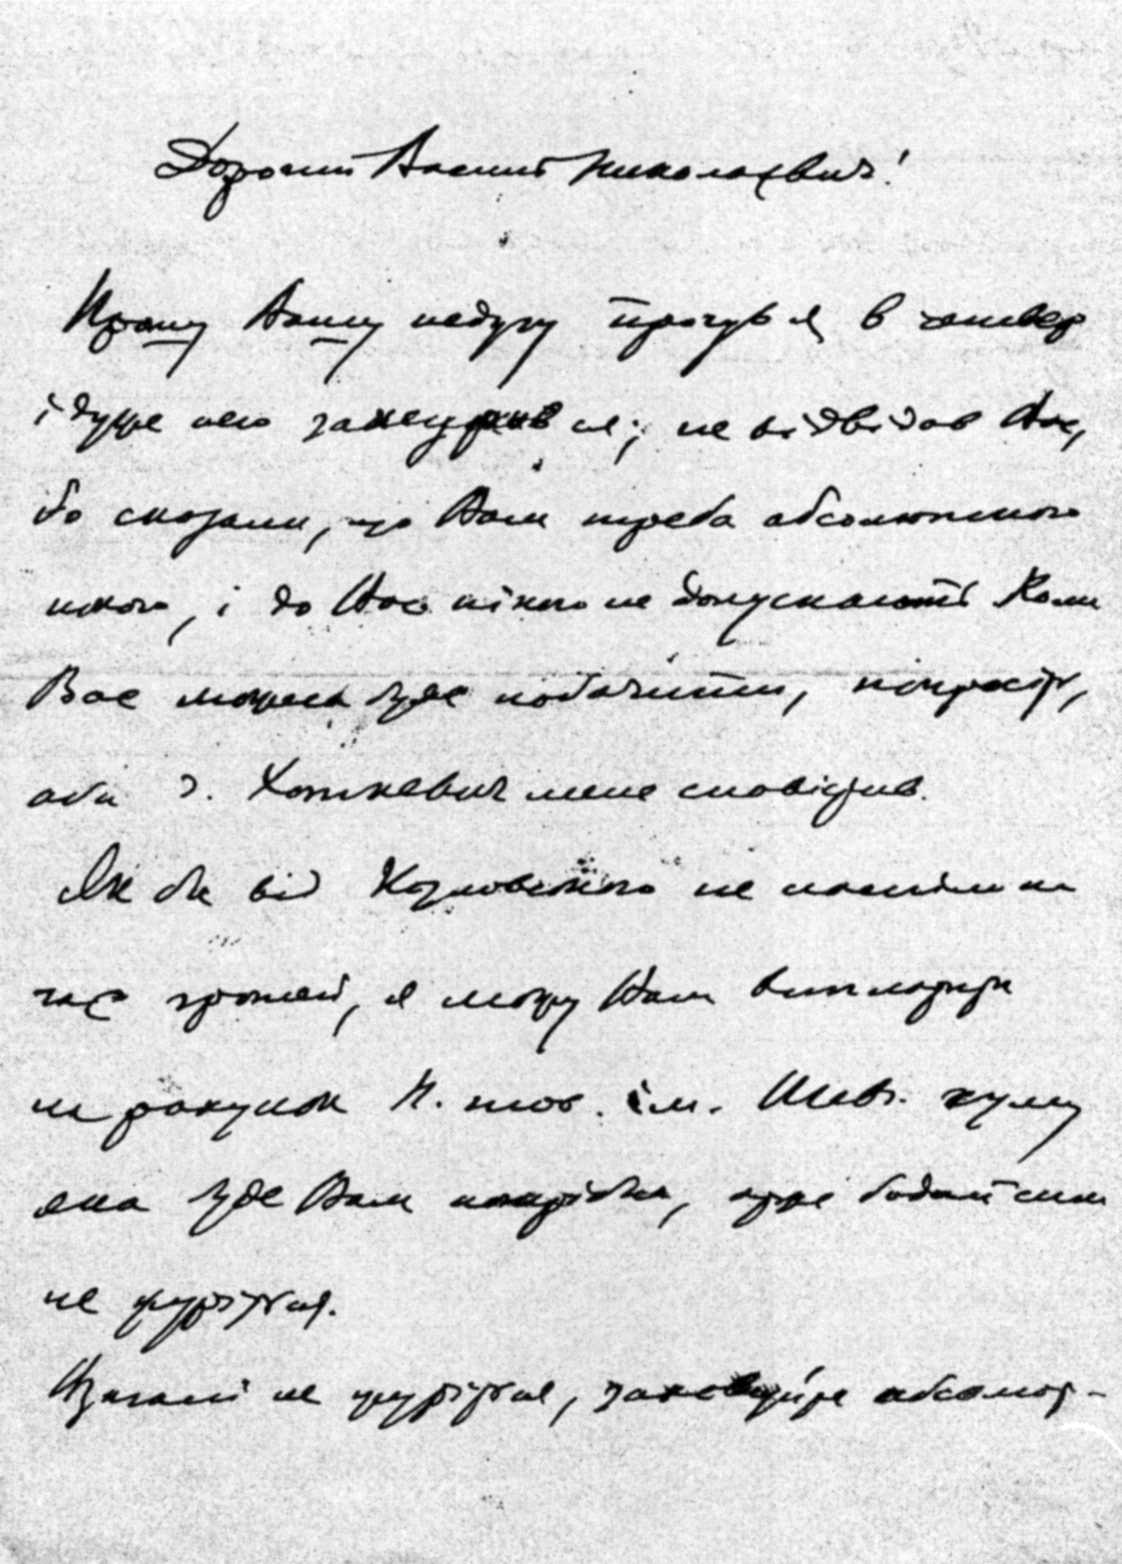 Дорогий Василь Николаєвич!
Про Вашу недугу прочув я в четвер
і дуже нею зажурив ся; не відвідав Вас,
бо сказали, що Вам треба абсолютного
покою, і до Вас нікого не допускають. Коли
Вас можна буде побачити, попросіть,
аби д. Хоткевич мене сповістив.
Як би від Козловського не наспіли на
час грошей, я можу Вам виплатити
на рахунок Н. тов. ім. Шевч. суму
яка буде Вам потрібна, отже бодай сим
не журіться.
Взагалі не журіться, заховуйте абсолют-